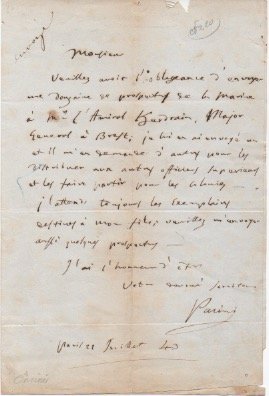 Monsieur
Veuillez avoir l'obligeance d'envoyer
une douzaine de prospectus de la marine
à Mr l'Amiral, Major
Général à Brest, je lui en ai envoyé un
et il m'en demande d'autres pour les
distribuer aux autres officiers supérieurs
et les faire partir pour les colonies.
j'attends toujours les exemplaires
destinés à mon fils; veuillez m'envoyer
aussi quelques prospectus.
J'ai l'honneur d'être
Votre dévoué serviteur
Paris 22 Juillet